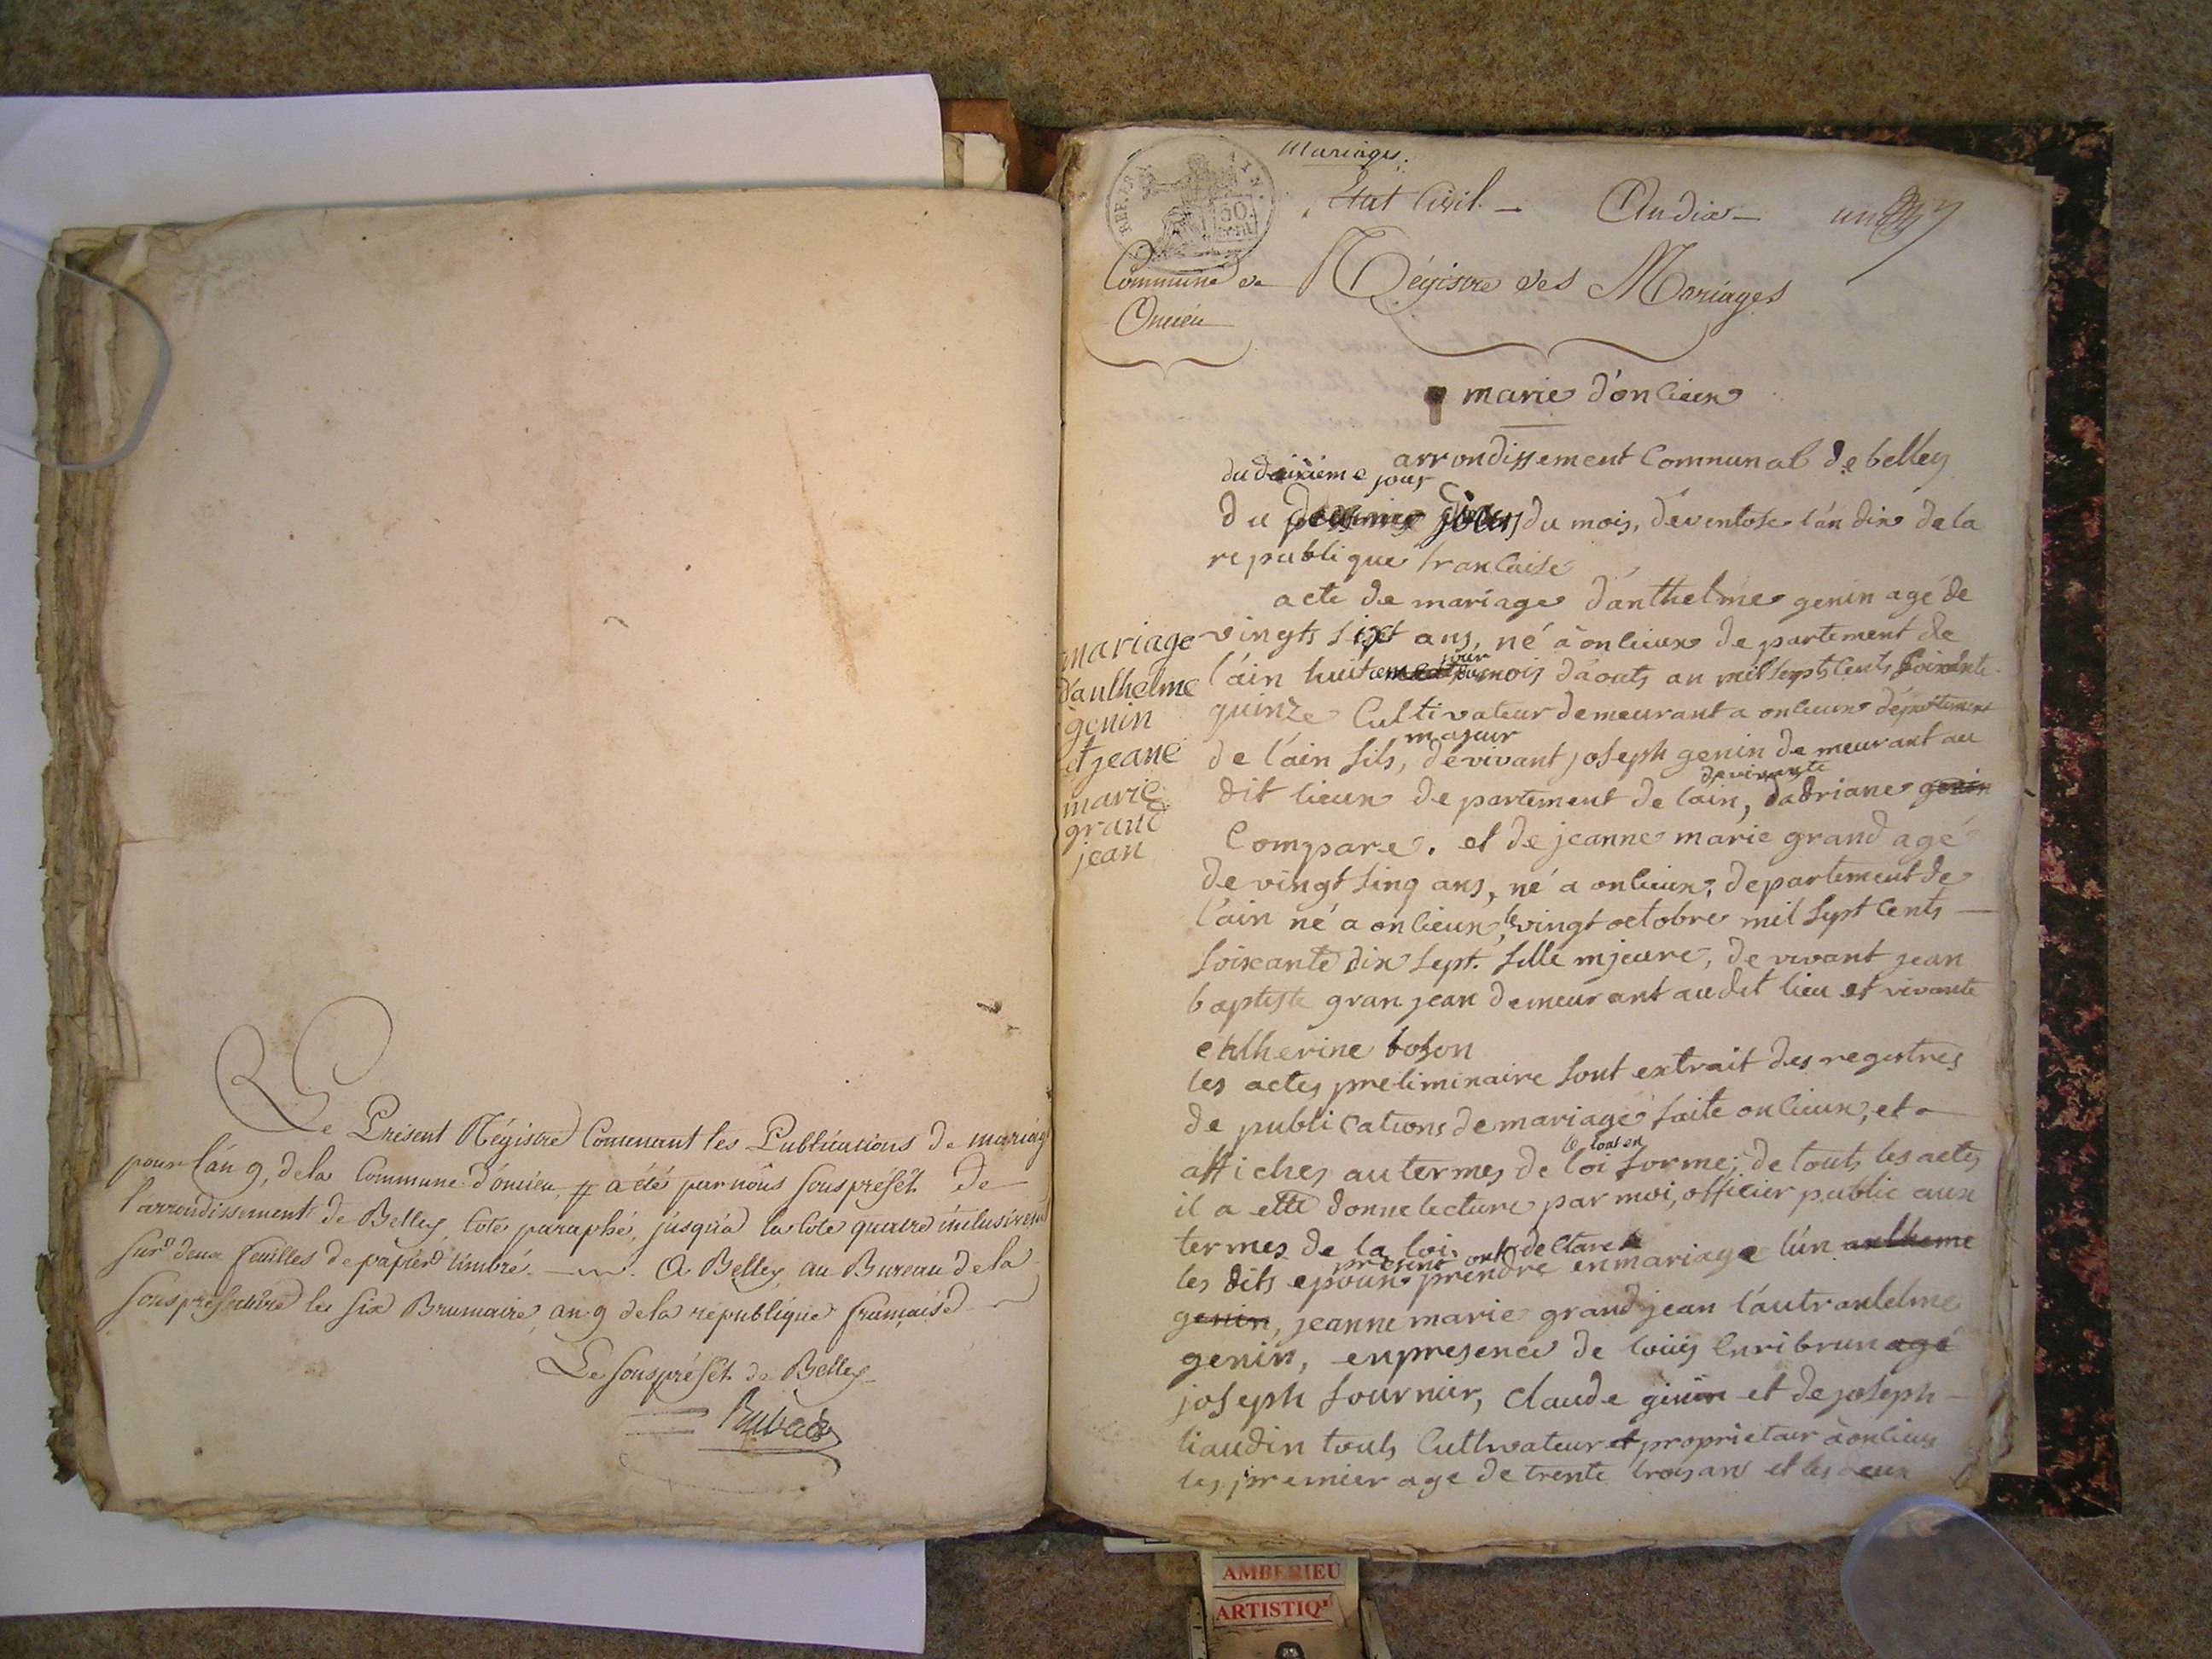 Le Présent Régistre Contenant les Publications de mariage
pour l'an 9, de la Commune d'oncieu, a été par nous souspréfêt de
l'arrondissement de Belley, coté paraphé, jusqu'à la cote quatre inclusivemt
sur deux feuilles de papier timbré. A Belley, au Bureau de la
souspréfecture le six Brumaire, an 9 de la république française
Le souspréfêt de Belley
Mariages.
REP. FRA
50.
cent
Etat Civil - An dix - un
Commune de
Oncieu
Régistre des Mariages
marie d'onlieux
arrondissement Communal de belley
du deixieme jour
du jour du mois, de ventose l'an dix de la
republique francaise
acte de mariage d'anthelme genin agé de
vingts sixt ans, né à onlieux departement de
jour
l'ain huit du mois d'aouts an mil septs cents soixante
quinze Cultivateur demeurant a onlieux département
majeur
de l'ain fils, de vivant joseph genin demeurant au
de vivante
dit lieux departement de l'ain, d'adriane genin
Compare. et de jeanne marie grand agé
de vingt sinq ans, né a onlieux, departement de
l'ain né a onlieux, le vingt octobre mil sept cents
soixante dix sept. fille mjeure, de vivant jean
baptiste gran jean demeurant audit lieu et vivante
cathherine boson
les actes preliminaire sont extrait des registres
de publications de mariage faite onlieux, et
le tout en
affiches au termes de loi forme; de touts les actes
il a etté donne lecture par moi, officier public aux
termes de la loi.
present ont declare
les dits epoux prendre en mariage l'un anlheme
genin, jeanne marie grand jean l'autr antelme
genin, en presence de louis enri brun agé
joseph fournier, claude genin et de joseph
liaudin touts Cultivateur et proprietair à onlieux
les premier age de trente trois ans et les deux
mariage
d'anlhelme
genin
et jeane
marie
grand
jean
AMBERIEU
ARTISTIQ